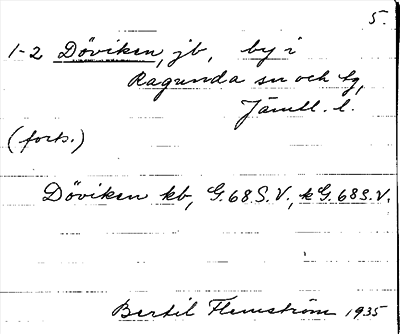 5.
1-2 Döviken, jb, by i
Ragunda sn och tg,
Jämtl. l.
(forts.)
Döviken kb, G.68.S.V., k G.68S.V.
Bertil Flemström 1935